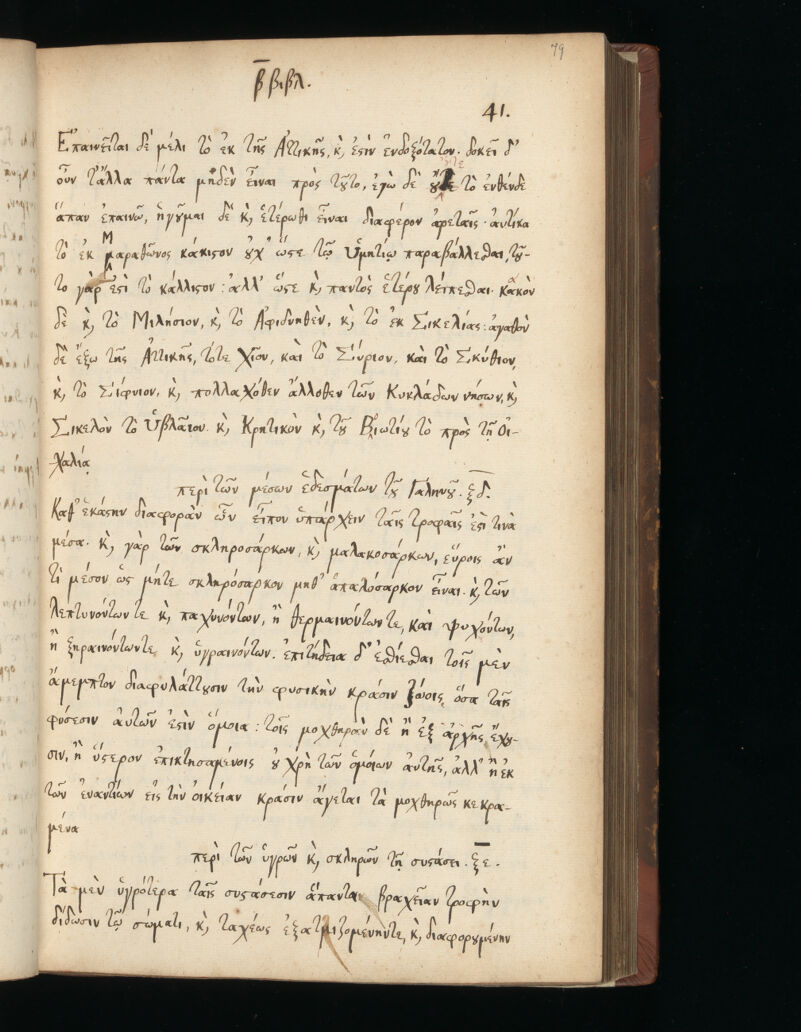 79
β̄ βιβλ.
41.
Ἐπαινεῖται δὲ μέλι τὸ ἐκ τῆς Ἀττικῆς, κ̀ ἐςὶν ἐνδοξότατον. δοκεῖ δ'
οὖν τἆλλα πάντα μηδὲν εἶναι πρὸς τȣ͂το, ἐγὼ δὲ ȣ̓́τε τὸ ἐνθένδε
ἅπαν ἐπαινῶ, ἡγȣ͂μαι δὲ κ̀ ἑτέρωθι εἶναι διαφέρον ἀρεταῖς· ἀυτίκα
τὸ ἐκ Μαραθῶνος κάκιςον ȣ̓χ' ὥςε τῷ Ὑμηττίῳ παραβάλλεσθαι, τȣ͂-
το γὰρ ἐςὶ τὸ κάλλιςον: ἀλλ' ὥςε κ̀ παντὸς ἑτέρȣ λείπεσθαι. κακὸν
δὲ κ̀ τὸ Μιλήσιον, κ̀ τὸ Ἀφιδνηθὲν, κ̀ τὸ ἐκ Σικελίας: ἀγαθὸν
δὲ ἔξω τῆς Ἀττικῆς, τότε Χῖον, καὶ τὸ Σύριον, καὶ τὸ Σκύθιον,
κ̀ τὸ Σίφνιον, κ̀ πολλαχόθεν ἄλλοθεν τῶν Κυκλάδων νήσων, κ̀
Σικελὸν τὸ Ὑβλαῖον. κ̀ Κρητικὸν κ̀ τȣ͂ Βοιωτίȣ τὸ πρὸς τῇ Οἰ-
χαλίᾳ
περὶ τῶν μέσων ἐδεσμάτων τȣ͂ Γαληνȣ͂. ξδ.
Καθ' ἑκάςην διαφορὰν ὧν εἶπον ὑπάρχειν ταῖς τροφαῖς ἐςὶ τινὰ
μέσα. κ̀ γὰρ τῶν σκληροσάρκων, κ̀ μαλακοσάρκων, εὕροις ἄν
τι μέσον ὡς μήτε σκληρόσαρκον μηθ' ἁπαλόσαρκον εἶναι. κ̀ τῶν
λεπτυνόντων τε κ̀ παχυνόντων, ἢ θερμαινόντων τε, καὶ ψυχόντων,
ἢ ξηραινόντων τε κ̀ ὑγραινόντων. ἐπιτήδεια δ' ἐσθίεσθαι τοῖς μὲν
ἄμεμπτον διαφυλάττȣσιν τὴν φυσικὴν κράσιν ζώοις, ὅσα ταῖς
φύσεσιν ἀυτῶν ἐςὶν ὅμοια: τοῖς μοχθηρὰν δὲ ἢ ἐξ ἀρχῆς ἔχȣ-
σιν, ἢ ὕςερον ἐπικτησαμένοις ȣ̓ χρὴ τῶν ὁμοίων ἀυτῆς, ἀλλ' ἢ ἐκ
τῶν ἐναντίων εἰς τὴν ὀικείαν κράσιν ἄγεται τὰ μοχθηρῶς κεκρα-
μένα
περὶ τῶν ὑγρῶν κ̀ σκληρῶν τῇ συςάσει. ξε.
Τὰ μὲν ὑγρότερα ταῖς συςάσεσιν ἅπαντα βραχεῖαν τροφὴν
δίδωσιν τῷ σώματι, κ̀ ταχέως ἐξατμιζομένην τε, κ̀ διαφορȣμένην